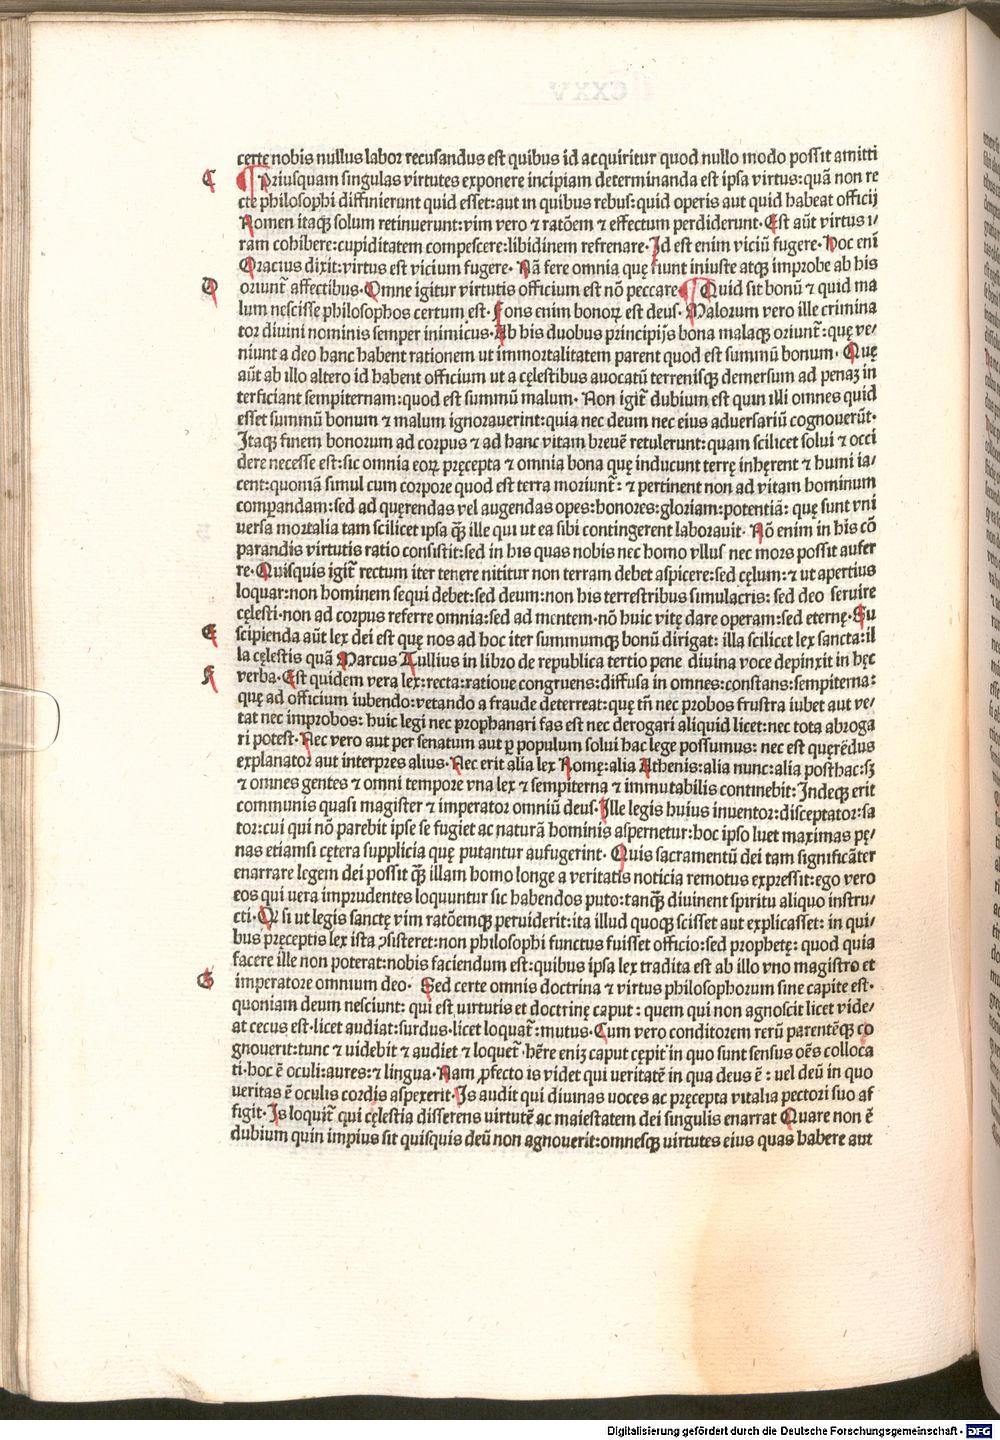 certe nobis nullus labor recusandus est quibus id acquiritur quod nullo modo possit amitti
C
Priusquam singulas virtutes exponere incipiam determinanda est ipsa virtus: quã non re
cte philosophi diffinierunt quid esset: aut in quibus rebus: quid operis aut quid habeat officij
Nomen itaqꝫ solum retinuerunt: vim vero ⁊ ratõem ⁊ effectum perdiderunt. Est aũt virtus i/
ram cohibere: cupiditatem compescere: libidinem refrenare. Id est enim viciũ fugere. Hoc eni
Oracius dixit: virtus est vicium fugere. Nã fere omnia quę fiunt iniuste atqꝫ improbe ab his
D
oriunt̃ affectibus. Omne igitur virtutis officium est nõ peccare. Quid sit bonũ ⁊ quid ma
lum nescisse philosophos certum est. Fons enim bonoꝝ est deus. Malorum vero ille crimina
tor divini nominis semper inimicus. Ab his duobus principijs bona malaqꝫ oriunt̃: quę ve/
niunt a deo hanc habent rationem ut immortalitatem parent quod est summũ bonum. Quę
aũt ab illo altero id habent officium ut a cęlestibus auocatũ terrenisqꝫ demersum ad penaꝫ in
terficiant sempiternam: quod est summũ malum. Non igit̃ dubium est quin illi omnes quid
esset summũ bonum ⁊ malum ignorauerint: quia nec deum nec eius adversariũ cognouerũt.
Itaqꝫ finem bonorum ad corpus ⁊ ad hanc vitam breuẽ retulerunt: quam scilicet solui ⁊ occi
dere necesse est: sic omnia eoꝝ pręcepta ⁊ omnia bona quę inducunt terrę inhęrent ⁊ humi ia/
cent: quoniã simul cum corpore quod est terra moriunt̃: ⁊ pertinent non ad vitam hominum
comꝑandam: sed ad quęrendas vel augendas opes: honores: gloriam: potentiã: quę sunt vni
uersa mortalia tam scilicet ipsa q̃ꝫ ille qui ut ea sibi contingerent laborauit. Nõ enim in his cõ
parandis virtutis ratio consistit: sed in his quas nobis nec homo vllus nec mors possit aufer
re. Quisquis igit̃ rectum iter tenere nititur non terram debet aspicere: sed cęlum: ⁊ ut apertius
loquar: non hominem sequi debet: sed deum: non his terrestribus simulacris: sed deo seruire
cęlesti. non ad corpus referre omnia: sed ad mentem. nõ huic vitę dare operam: sed eternę. Su
E
scipienda aũt lex dei est quę nos ad hoc iter summumqꝫ bonũ dirigat: illa scilicet lex sancta: il
la cęlestis quã Marcus Tullius in libro de republica tertio pene divina voce depinxit in hęc
F
verba. Est quidem vera lex: recta: ratioue congruens: diffusa in omnes: constans: sempiterna:
quę ad officium iubendo: vetando a fraude deterreat: quę tñ nec probos frustra iubet aut ve/
tat nec improbos: huic legi nec prophanari fas est nec derogari aliquid licet: nec tota abroga
ri potest. Nec vero aut per senatum aut ꝑ populum solui hac lege possumus: nec est quęrẽdus
explanator aut interpres alius. Nec erit alia lex Romę: alia Athenis: alia nunc: alia posthac: sꝫ
⁊ omnes gentes ⁊ omni tempore vna lex ⁊ sempiterna ⁊ immutabilis continebit: Indeqꝫ erit
communis quasi magister ⁊ imperator omniũ deus. Ille legis huius inventor: disceptator: sa
tor: cui qui nõ parebit ipse se fugiet ac naturã hominis aspernetur: hoc ipso luet maximas pę/
nas etiamsi cętera supplicia quę putantur aufugerint. Quis sacramentũ dei tam significãter
enarrare legem dei possit q̃ꝫ illam homo longe a veritatis noticia remotus expressit: ego vero
eos qui uera imprudentes loquuntur sic habendos puto: tanq̃ꝫ divinent spiritu aliquo instru/
cti. Q si ut legis sanctę vim ratõemqꝫ peruiderit: ita illud quoqꝫ scisset aut explicasset: in qui/
bus pręceptis lex ista ꝯsisteret: non philosophi functus fuisset officio: sed prophetę: quod quia
facere ille non poterat: nobis faciendum est: quibus ipsa lex tradita est ab illo vno magistro et
G
imperatore omnium deo. Sed certe omnis doctrina ⁊ virtus philosophorum sine capite est.
quoniam deum nesciunt: qui est uirtutis et doctrinę caput: quem qui non agnoscit licet vide/
at cecus est. licet audiat: surdus. licet loquat̃: mutus. Cum vero conditorem rerũ parentẽqꝫ co
gnouerit: tunc ⁊ uidebit ⁊ audiet ⁊ loquet̃. hẽre eniꝫ caput cępit in quo sunt sensus oẽs colloca
ti. hoc ẽ oculi: aures: ⁊ lingua. Nam ꝓfecto is videt qui veritatẽ in qua deus ẽ: uel deũ in quo
veritas ẽ oculis cordis aspexerit. Is audit qui diuinas uoces ac pręcepta vitalia pectori suo af
figit. Is loquit̃ qui cęlestia disserens virtutẽ ac maiestatem dei singulis enarrat Quare non ẽ
dubium quin impius sit quisquis deũ non agnouerit: omnesqꝫ uirtutes eius quas habere aut
Digitalisierung gefördert durch die Deutsche Forschungsgemeinschaft - DFG